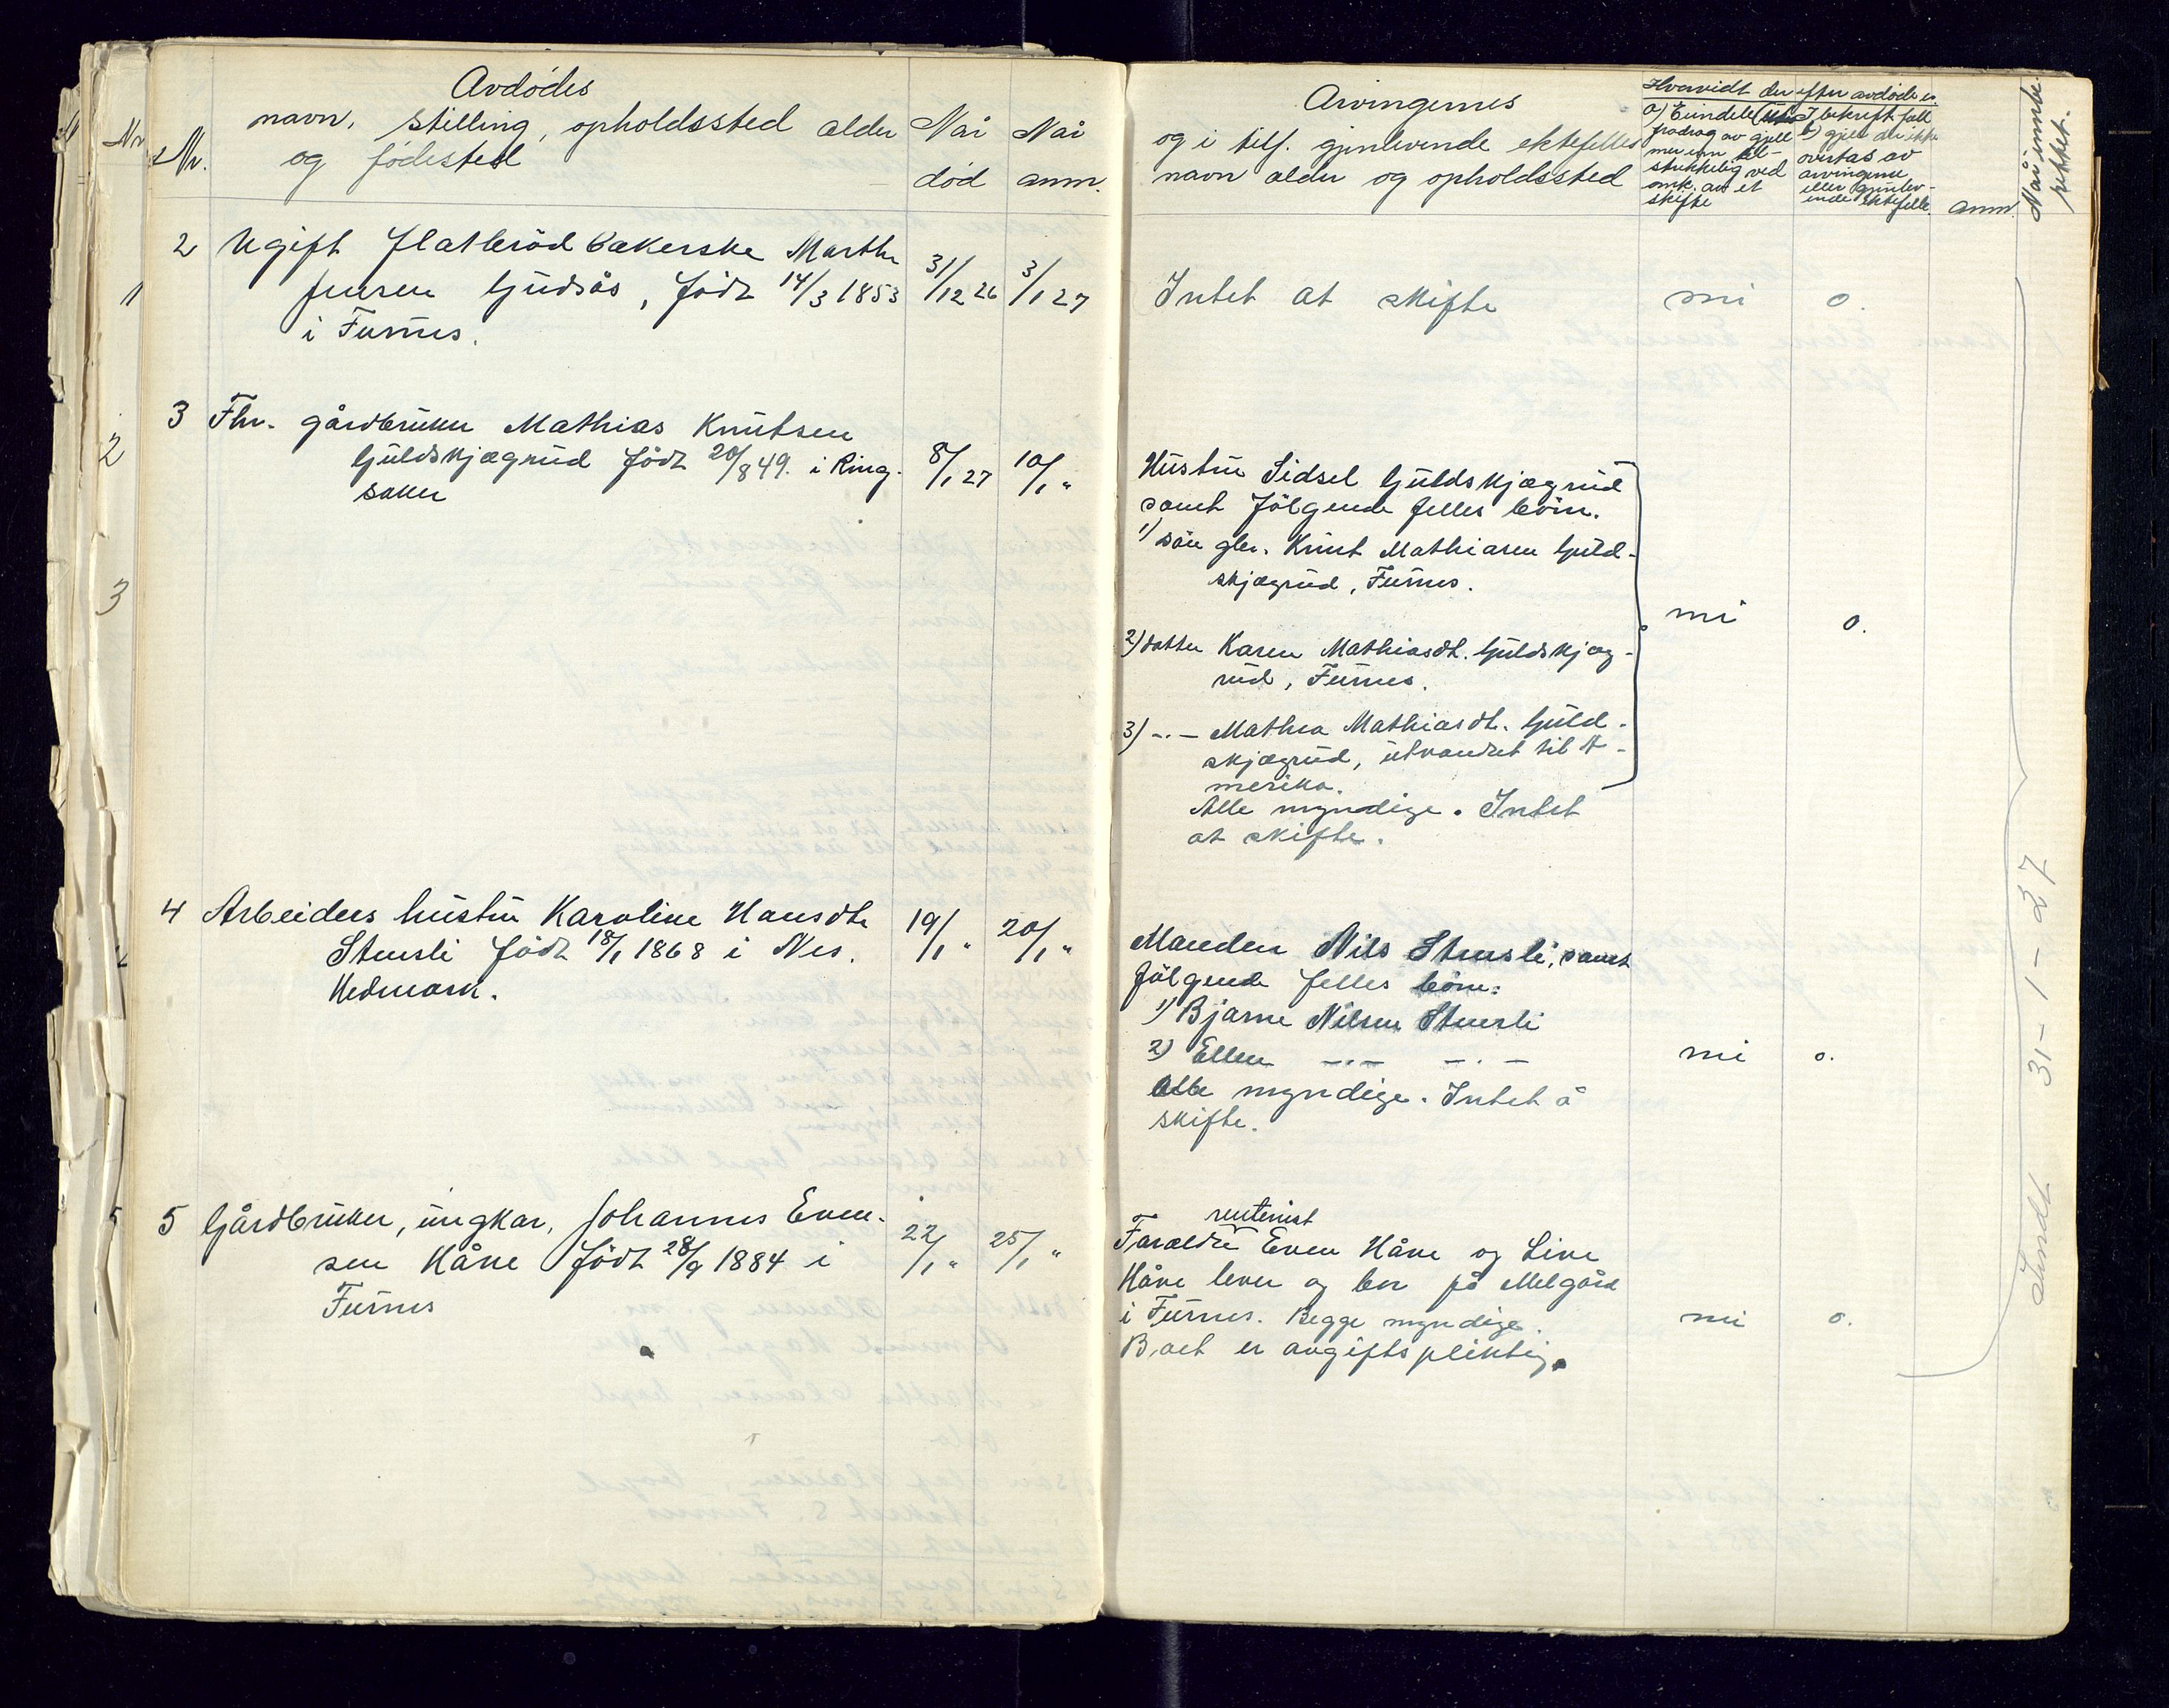 Nr.
Avdødes
navn, stilling, opholdssted alder
og fødested
Når
død
Når
anm.
2 Ugift flatbrød bakerske Marthe
Jensen Gudsås, født 14/3 1853
i Furnes.
31/12 26
3/1 27
3 Fhv. gårdbruker Mathias Knutsen
Guldskjægrud født 20/8 49. i Ring-
saker
8/1 27
10/1 "
4 Arbeiders hustru Karoline Hansdtr
Stensli født 18/1 1868 i Nes.
Hedmark.
19/1 "
20/1 "
5 Gårdbruker, ungkar, Johannes Even-
sen Kåne født 28/9 1884 i
Furnes
22/1 "
25/1 "
Nr
1
2
3
5
Arvingernes
og i tilf. gjenlevende ektefelles
navn alder og opholdssted
Hvorvidt der efter avdøde er
a) Eiendele
fradrag av gjeld
mer enn til-
strekkelig ved
omk. av et
skifte
I bekreft. fall
b) gjeld der ikke
overtas av
arvingene
eller gjenlev-
ende ektefelle
anm.
Når innbe-
rettet.
Intet at skifte
nei o.
Hustru Sidsel Guldskjægrud
samt følgende felles børn.
1) søn gbr. Knut Mathiasen Guld-
skjægrud, Furnes.
2) datter Karen Mathiasdt. Guldskjæg-
rud, Furnes.
3) -.- Mathea Mathiasdt. Guld-
skjægrud, utvandret til A-
merika.
Alle myndige. Intet
at skifte.
nei o.
Manden Nils Stensli, samt
følgende felles børn:
1) Bjarne Nilsen Stensli
2) Ellen -.- -.-
Alle myndige. Intet å
skifte.
nei o.
rentenist
Forældre Even Kåne og Line
Kåne lever og bor på Melgård
i Furnes. Begge myndige.
Boet er avgiftspliktig.
nei o.
Sendt 31-1-27